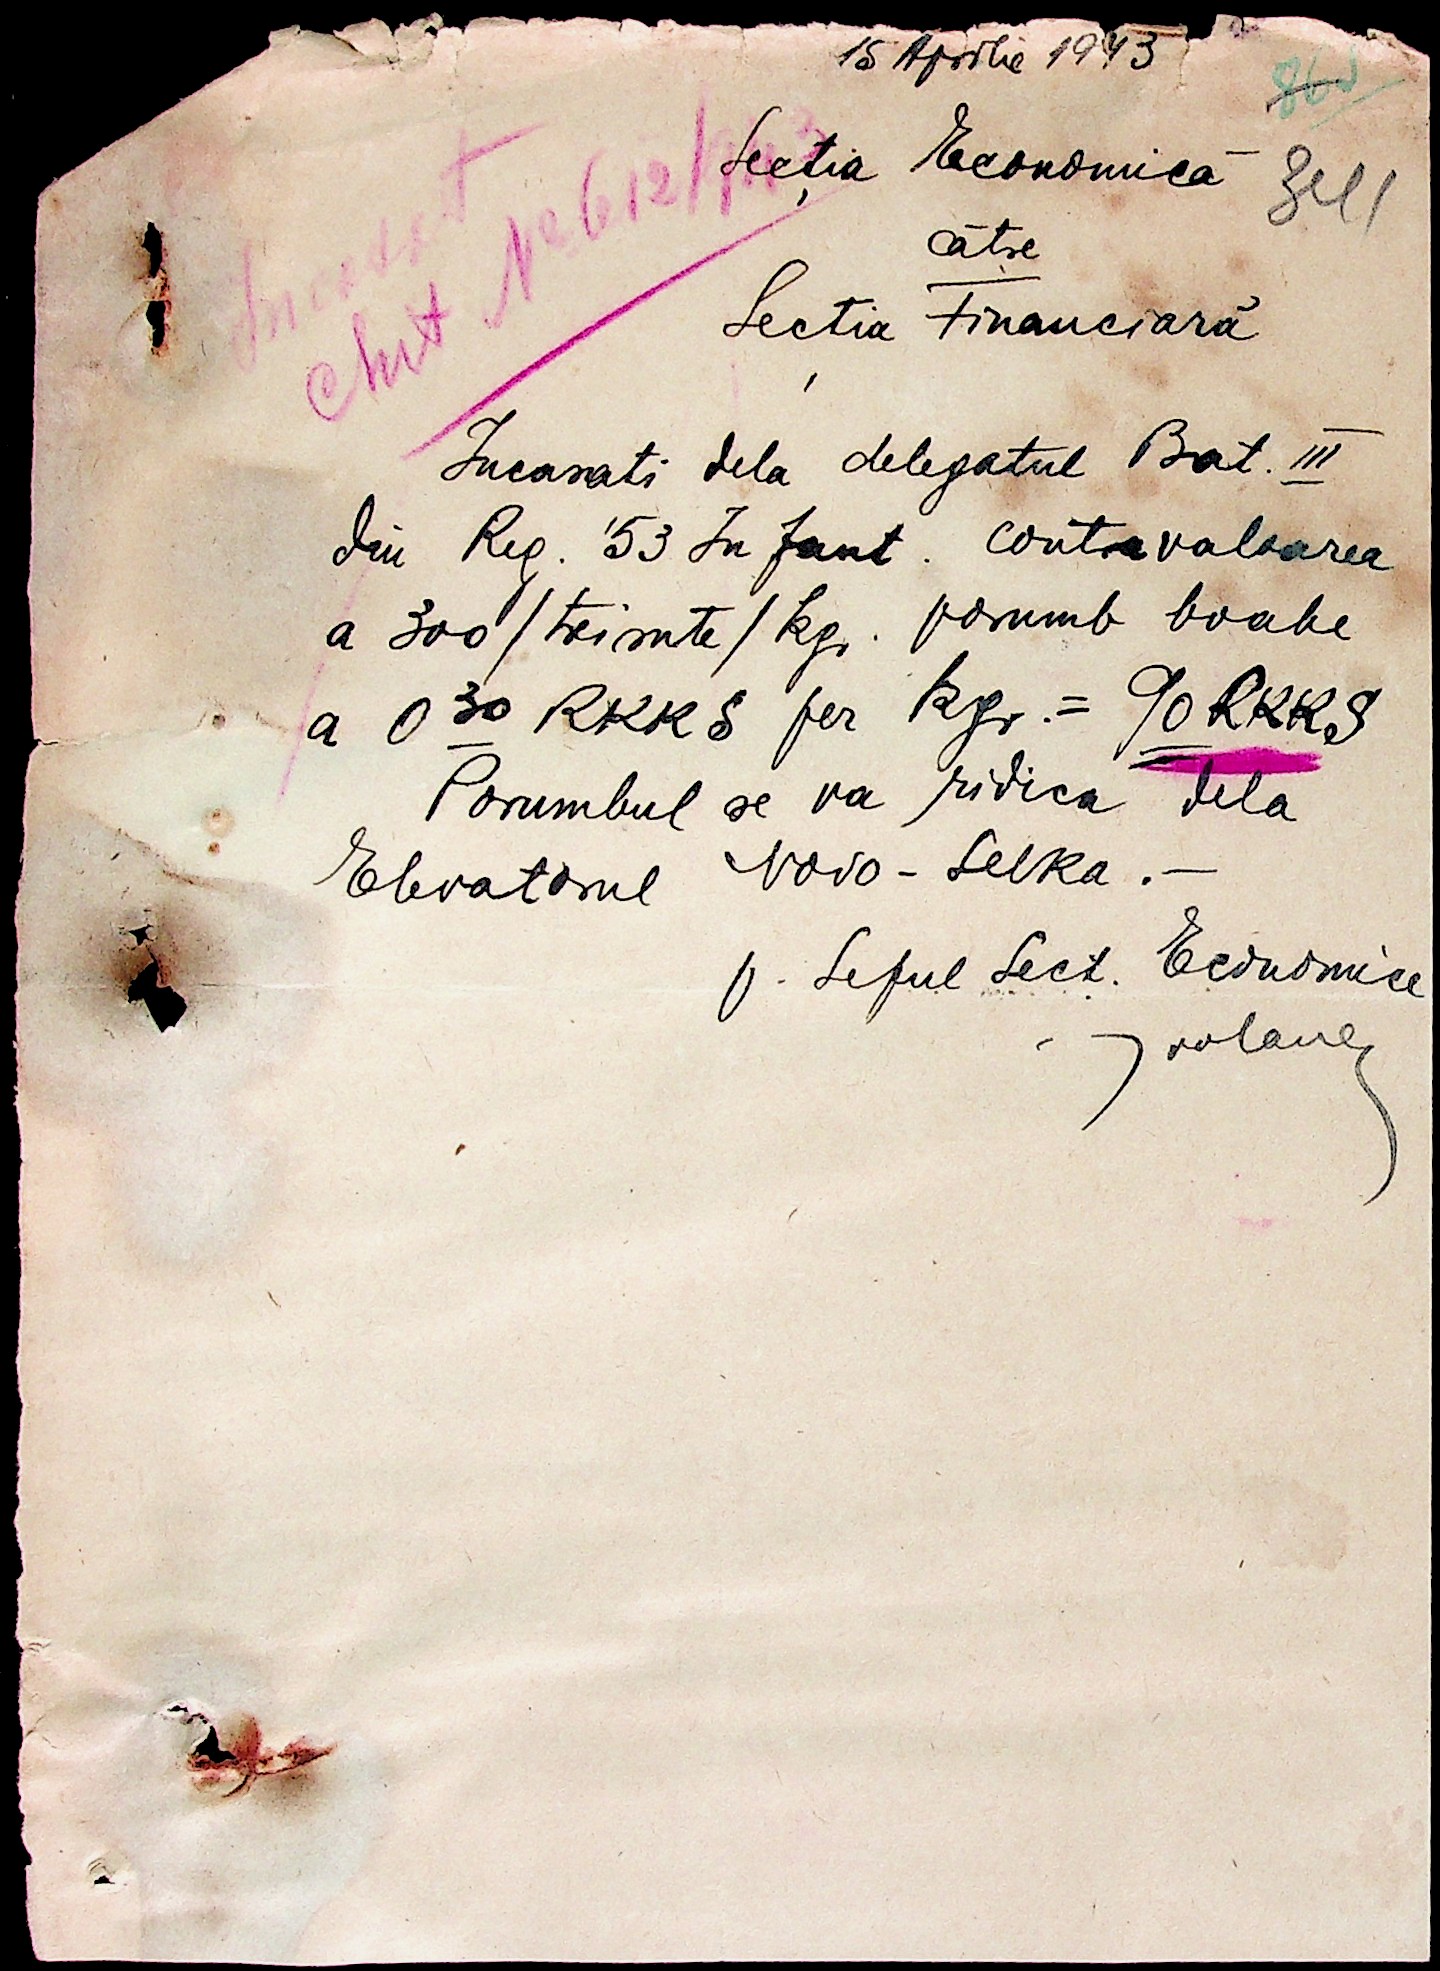 15 Aprilie 1943
Secția Economică
către
Secția Financiară
Incasat
chit № 612/943
Incasati dela delegatul Bat. III
din Reg. 53 Infant. contravaloarea
a 300/trei sute/kgr. porumb boabe
a 0 30 RKKS per kgr. = 90 RKKS
Porumbul se va ridica dela
Elevatorul Novo-Selka.-
p. Seful Sect. Economice